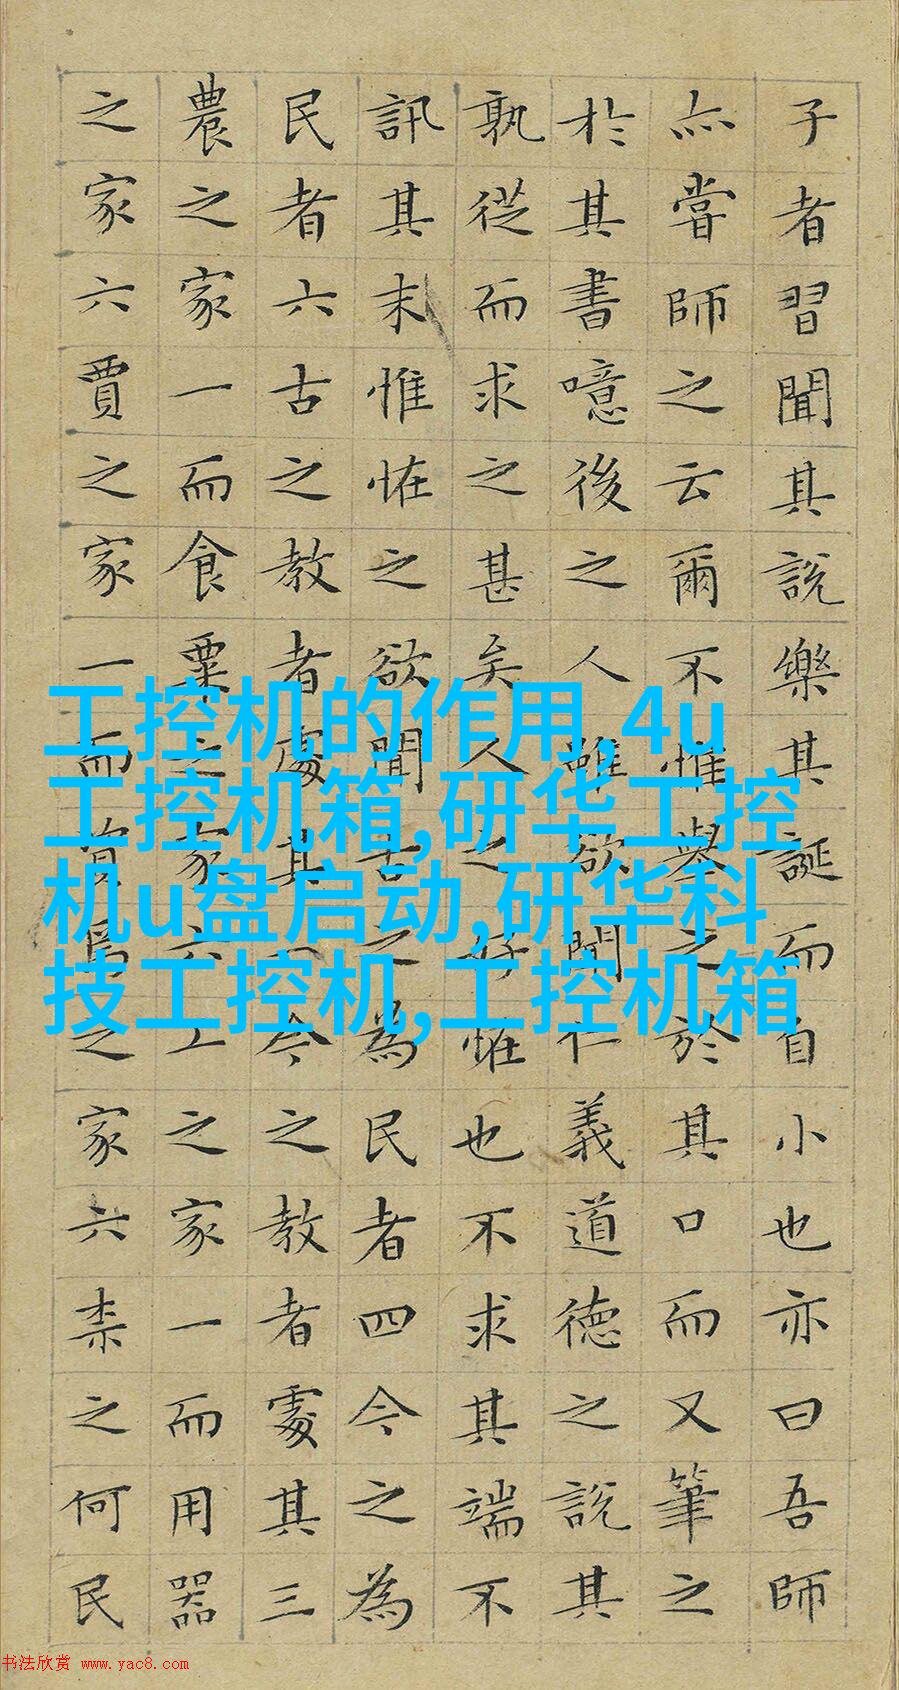 子者習聞其說樂其誕而自小也亦曰吾師
亦嘗師之云爾不惟舉之於其口而又筆之
於其書噫後之人雖欲聞仁義道德之說其
孰從而求之甚矣人之好恠也不求其端不
訊其末惟恠之欲聞古之為民者四今之為
民者六古之教者處其一今之教者處其三
農之家一而食粟之家六工之家一而用器
之家六賈之家一而資焉之家六柰之何民
工控机的作用,4u
工控机箱,研华工控
机u盘启动,研华科
技工控机,工控机箱
书法欣赏 www.yac8.com